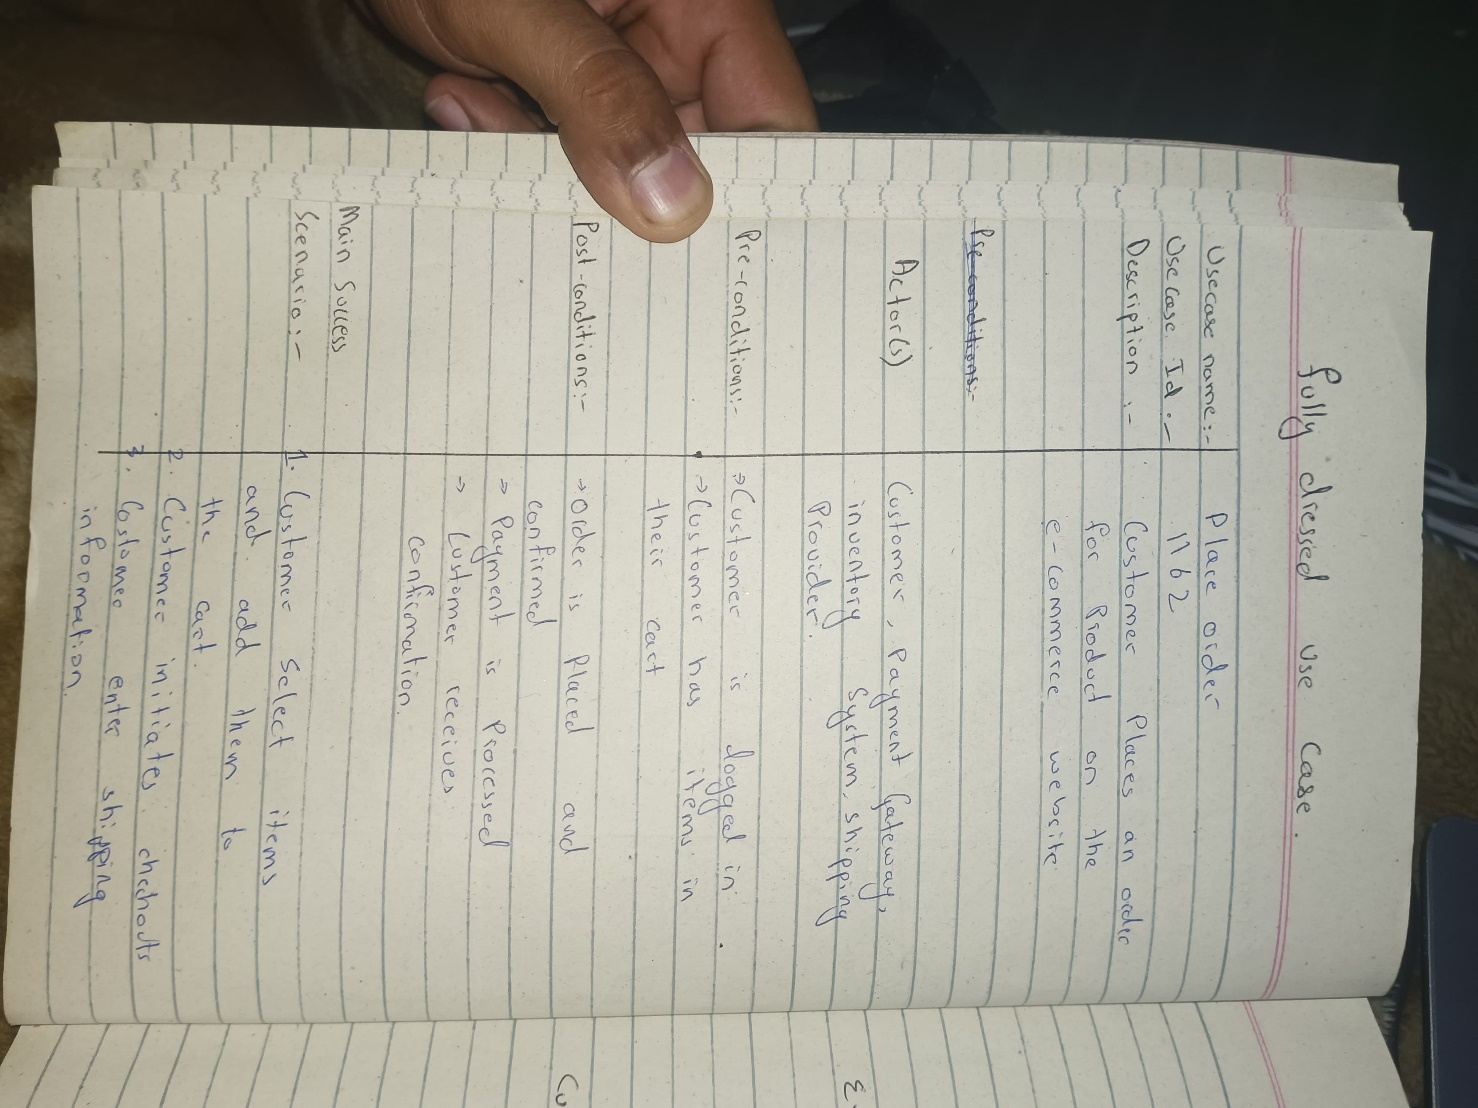 fully dressed use case.
Usecase name:- Place order
Usecase Id :- 1162
Description :- Customer Places an order
for Product on the
e-commerce website
Pre-conditions:-
Actor(s) Customer, Payment Gateway,
inventory System, shipping
Provider.
Pre-conditions:- → Customer is logged in
→ Customer has items in
their cart
Post-conditions:- → Order is Placed and
confirmed
→ Payment is Processed
→ Customer receives
confirmation.
Main Success
Scenario:- 1. Customer Select items
and add them to
the cart.
2. Customer initiates chechouts
3. Costomer enter shipping
information.